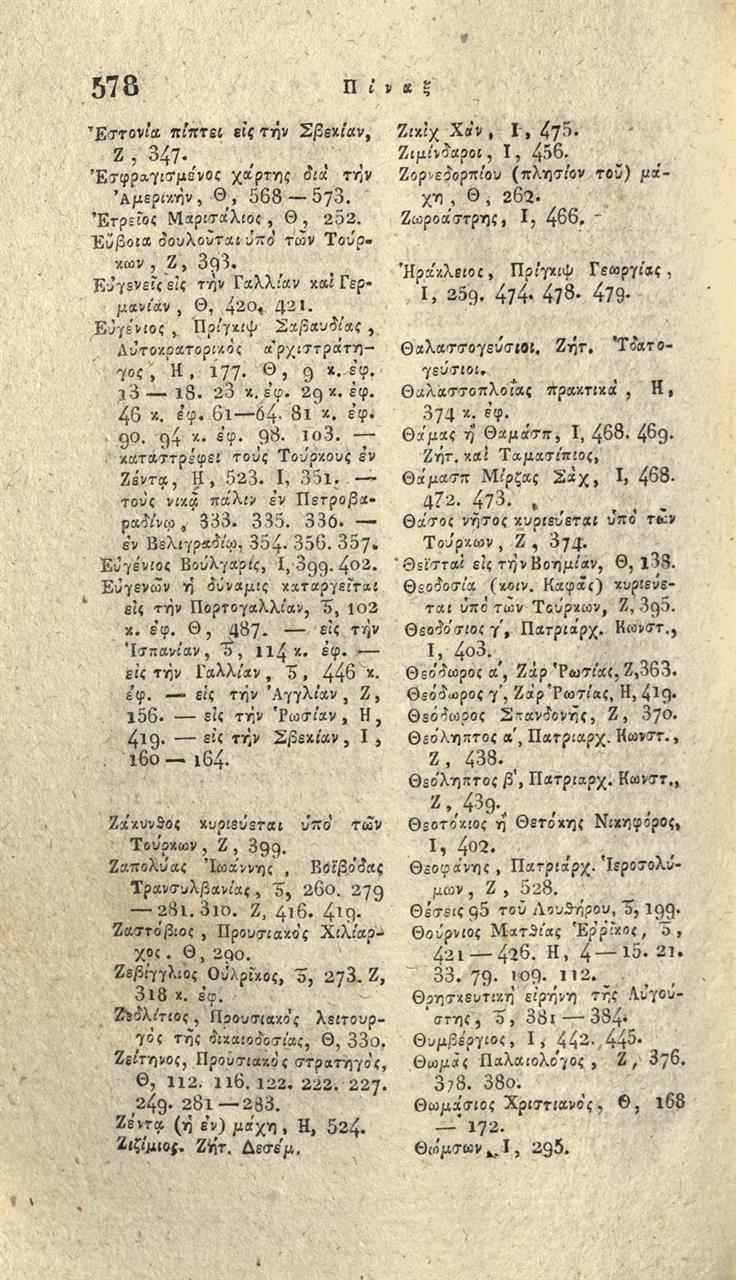 578
Πίναξ
Ἐστονία πίπτει εἰς τὴν Σβεκίαν,
Ζ, 347.
Ἐσφραγισμένος χάρτης διὰ τὴν
Ἀμερικὴν, Θ, 568 — 573.
Ἐτρεῖος Μαρισάλιος, Θ, 252.
Εὔβοια δουλοῦται ὑπὸ τῶν Τούρ-
κων, Ζ, 393.
Εὐγενεῖς εἰς τὴν Γαλλίαν καὶ Γερ-
μανίαν, Θ, 420. 421.
Εὐγένιος, Πρίγκιψ Σαβαυδίας,
Αὐτοκρατορικὸς ἀρχιστράτη-
γος, Η, 177. Θ, 9 κ. ἐφ.
13 — 18. 23 κ. ἐφ. 29 κ. ἐφ.
46 κ. ἐφ. 61—64. 81 κ. ἐφ.
90. 94 κ. ἐφ. 98. 103. —
καταστρέφει τοὺς Τούρκους ἐν
Ζέντᾳ, Η, 523. Ι, 351. —
τοὺς νικᾷ πάλιν ἐν Πετροβα-
ραδίνῳ, 333. 335. 336. —
ἐν Βελιγραδίῳ, 354. 356. 357.
Εὐγένιος Βούλγαρις, Ι, 399. 402.
Εὐγενῶν ἡ δύναμις καταργεῖται
εἰς τὴν Πορτογαλλίαν, Ϛ, 102
κ. ἐφ. Θ, 487. — εἰς τὴν
Ἱσπανίαν, Ϛ, 114 κ. ἐφ. —
εἰς τὴν Γαλλίαν, Ϛ, 446 κ.
ἐφ. — εἰς τὴν Ἀγγλίαν, Ζ,
156. — εἰς τὴν Ῥωσίαν, Η,
419. — εἰς τὴν Σβεκίαν, Ι,
160 — 164.
Ζάκυνθος κυριεύεται ὑπὸ τῶν
Τούρκων, Ζ, 399.
Ζαπολύας Ἰωάννης, Βοϊβόδας
Τρανσυλβανίας, Ϛ, 260. 279
— 281. 310. Ζ, 416. 419.
Ζαστόβιος, Προυσιακὸς Χιλίαρ-
χος. Θ, 290.
Ζεβίγγλιος Οὐλρῖκος, Ϛ, 273. Ζ,
318 κ. ἐφ.
Ζεδλίτιος, Προυσιακὸς λειτουρ-
γὸς τῆς δικαιοδοσίας, Θ, 330.
Ζείτηνος, Προυσιακὸς στρατηγὸς,
Θ, 112. 116. 122. 222. 227.
249. 281 — 283.
Ζέντᾳ (ἡ ἐν) μάχη, Η, 524.
Ζιζίμιος. Ζήτ. Δεσέμ.
Ζικὶχ Χάν, Ι, 475.
Ζιμίνδαροι, Ι, 456.
Ζορνεδορπίου (πλησίον τοῦ) μά-
χη, Θ, 262.
Ζωροάστρης, Ι, 466.
Ἡράκλειος, Πρίγκιψ Γεωργίας,
Ι, 259. 474. 478. 479.
Θαλασσογεύσιοι. Ζήτ. Ὑδατο-
γεύσιοι.
Θαλασσοπλοΐας πρακτικὰ, Η,
374 κ. ἐφ.
Θάμας ἢ Θαμάσπ, Ι, 468. 469.
Ζήτ. καὶ Ταμασίπιος,
Θάμασπ Μίρζας Σάχ, Ι, 468.
472. 473.
Θάσος νῆσος κυριεύεται ὑπὸ τῶν
Τούρκων, Ζ, 374.
Θεϊσταὶ εἰς τὴν Βοημίαν, Θ, 138.
Θεοδοσία (κοιν. Καφᾶς) κυριεύε-
ται ὑπὸ τῶν Τούρκων, Ζ, 395.
Θεοδόσιος γ΄, Πατριάρχ. Κωνστ.,
Ι, 403.
Θεόδωρος α΄, Ζὰρ Ῥωσίας, Ζ, 363.
Θεόδωρος γ΄, Ζὰρ Ῥωσίας, Η, 419.
Θεόδωρος Σπανδονῆς, Ζ, 370.
Θεόληπτος α΄, Πατριαρχ. Κωνστ.,
Ζ, 438.
Θεόληπτος β΄, Πατριαρχ. Κωνστ.,
Ζ, 439.
Θεοτόκιος ἢ Θετόκης Νικηφόρος,
Ι, 402.
Θεοφάνης, Πατριάρχ. Ἱεροσολύ-
μων, Ζ, 528.
Θέσεις 95 τοῦ Λουθήρου, Ϛ, 199.
Θούρνιος Ματθίας Ἐρρῖκος, Ϛ,
421 — 426. Η, 4 — 15. 21.
33. 79. 109. 112.
Θρησκευτικὴ εἰρήνη τῆς Αὐγού-
στης, Ϛ, 381 — 384.
Θυμβέργιος, Ι, 442. 445.
Θωμᾶς Παλαιολόγος, Ζ, 376.
378. 380.
Θωμάσιος Χριστιανὸς, Θ, 168
— 172.
Θώμσων, Ι, 295.